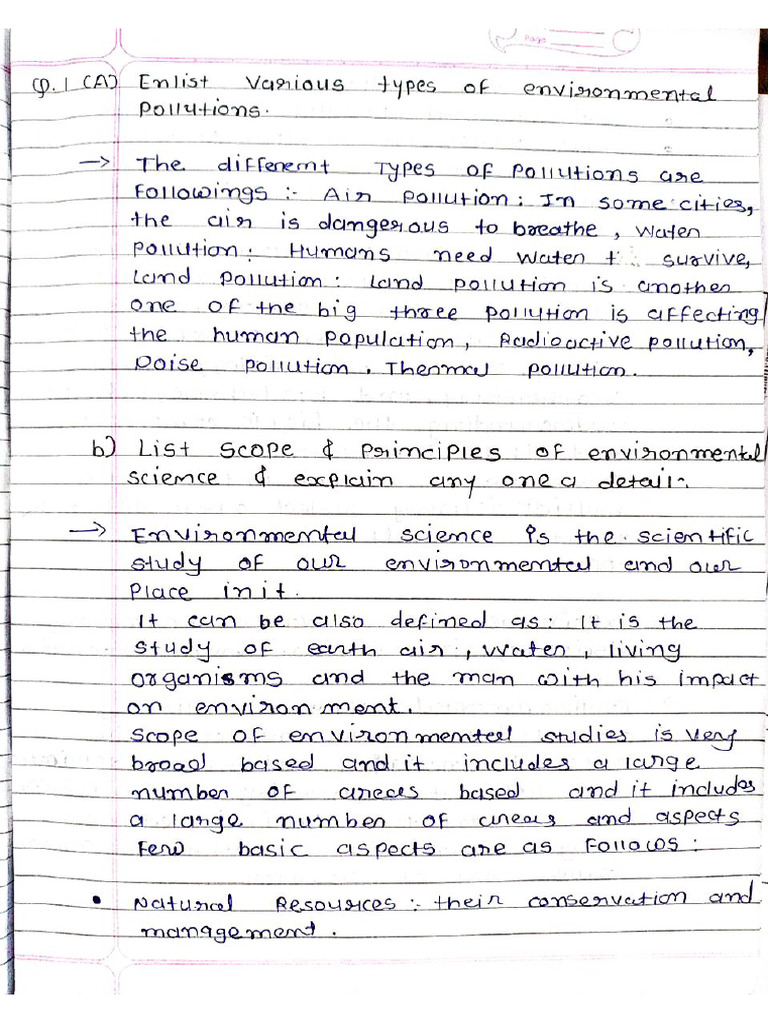 Page
Q.1 (A) Enlist various types of environmental
pollutions.
→ The different types of pollutions are
followings :- Air pollution : In some cities,
the air is dangerous to breathe, water
pollution : Humans need water t survive,
Land pollution : Land pollution is another
one of the big three pollution is affecting
the human population, Radioactive pollution,
Noise pollution, Thermal pollution.
b) List scope & principles of environmental
science & explain any one a detail:
→ Environmental science is the scientific
study of our environmental and our
place in it.
It can be also defined as: It is the
study of earth air, water, living
organisms and the man with his impact
on environment.
Scope of environmental studies is very
broad based and it includes a large
number of areas based and it includes
a large number of areas and aspects
Few basic aspects are as follows :
• Natural Resources :- their conservation and
management.